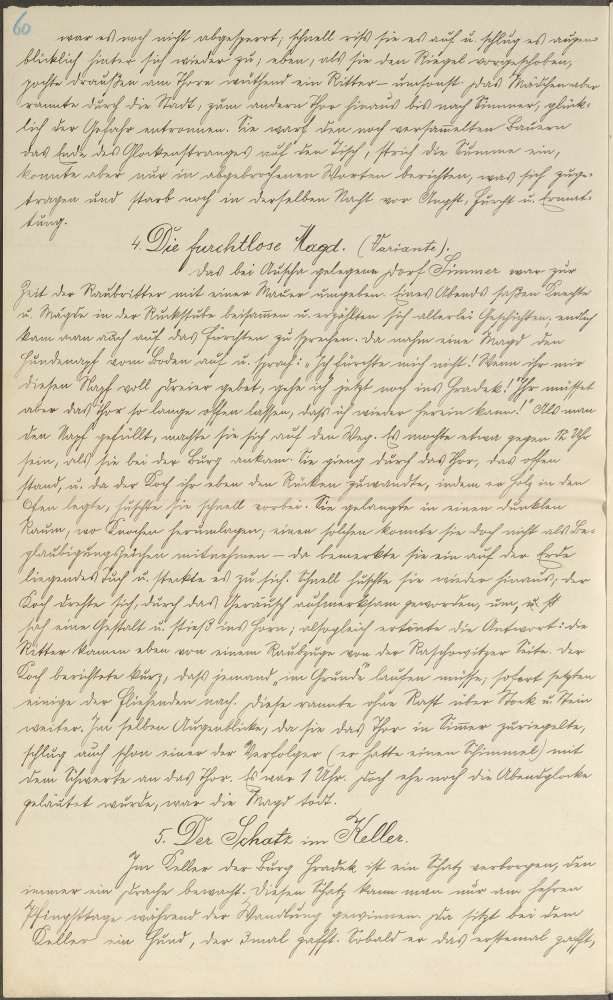 60
war es noch nicht abgesperrt; schnell riß sie es auf u. schlug es augen-
blicklich hinter sich wieder zu; eben, als sie den Riegel vorgeschoben,
pochte draußen am Thore wüthend ein Ritter – umsonst. Das Mädchen aber
rannte durch die Stadt, zum andern Thor hinaus bis nach Simmer, glück-
lich der Gefahr entronnen. Sie warf den noch versam̄elten Bauern
das Ende des Glockenstranges auf den Tisch, strich die Summe ein,
konnte aber nur in abgebrochenen Worten berichten, was sich zuge-
tragen und starb noch in derselben Nacht vor Angst, Furcht u. Ermat-
tung.
4. Die furchtlose Magd. (Variante).
Das bei Auscha gelegene Dorf Simmer war zur
Zeit der Raubritter mit einer Mauer umgeben. Eines Abends saßen Knechte
u. Mägde in der Rockstube beisammen u. erzählten sich allerlei Geschichten; endlich
kam man auch auf das Fürchten zu sprechen. Da nahm eine Magd den
Hundenapf vom Boden auf u. sprach: „Ich fürchte mich nicht! Wenn ihr mir
diesen Napf voll Dreier gebet, gehe ich jetzt noch ins Hradek! Ihr müsset
aber das Thor so lange offen lassen, daß ich wieder herein kann!" Als man
den Napf gefüllt, machte sie sich auf den Weg. Es mochte etwa gegen 12 Uhr
sein, als sie bei der Burg ankam. Sie gieng durch das Thor, das offen
stand, u. da der Koch ihr eben den Rücken zuwandte, indem er Holz in den
Ofen legte, huschte sie schnell vorbei. Sie gelangte in einen dunklen
Raum, wo Knochen herumlagen; einen solchen konnte sie doch nicht als Be-
glaubigungszeichen mitnehmen – da bemerkte sie ein auf der Erde
liegendes Tuch u. steckte es zu sich. Schnell huschte sie wieder hinaus; der
Koch drehte sich, durch das Geräusch aufmerksam geworden, um, u.
sah eine Gestalt u. stieß ins Horn; alsogleich ertönte die Antwort: die
Ritter kamen eben von einem Raubzuge von der Seite. Der
Koch berichtete kurz, daß jemand „im Grunde" laufen müsse; sofort setzten
einige der Fliehenden nach. Diese rannte ohne Rast über Stock u Stein
weiter. Im selben Augenblicke, da sie das Thor in Sim̄er zuriegelte,
schlug auch schon einer der Verfolger (er hatte einen Schimmel) mit
dem Schwerte an das Thor. Es war 1 Uhr. Doch ehe noch die Abendglocke
geläutet wurde, war die Magd todt.
5. Der Schatz im Keller.
Im Keller der Burg Hradek ist ein Schatz verborgen, den
immer ein Drache bewacht. Diesen Schatz kann man nur am hehren
Pfingsttage während der Wandlung gewinnen. Da sitzt bei dem
Keller ein Hund, der 3mal gafft. Sobald er das erstemal gafft,